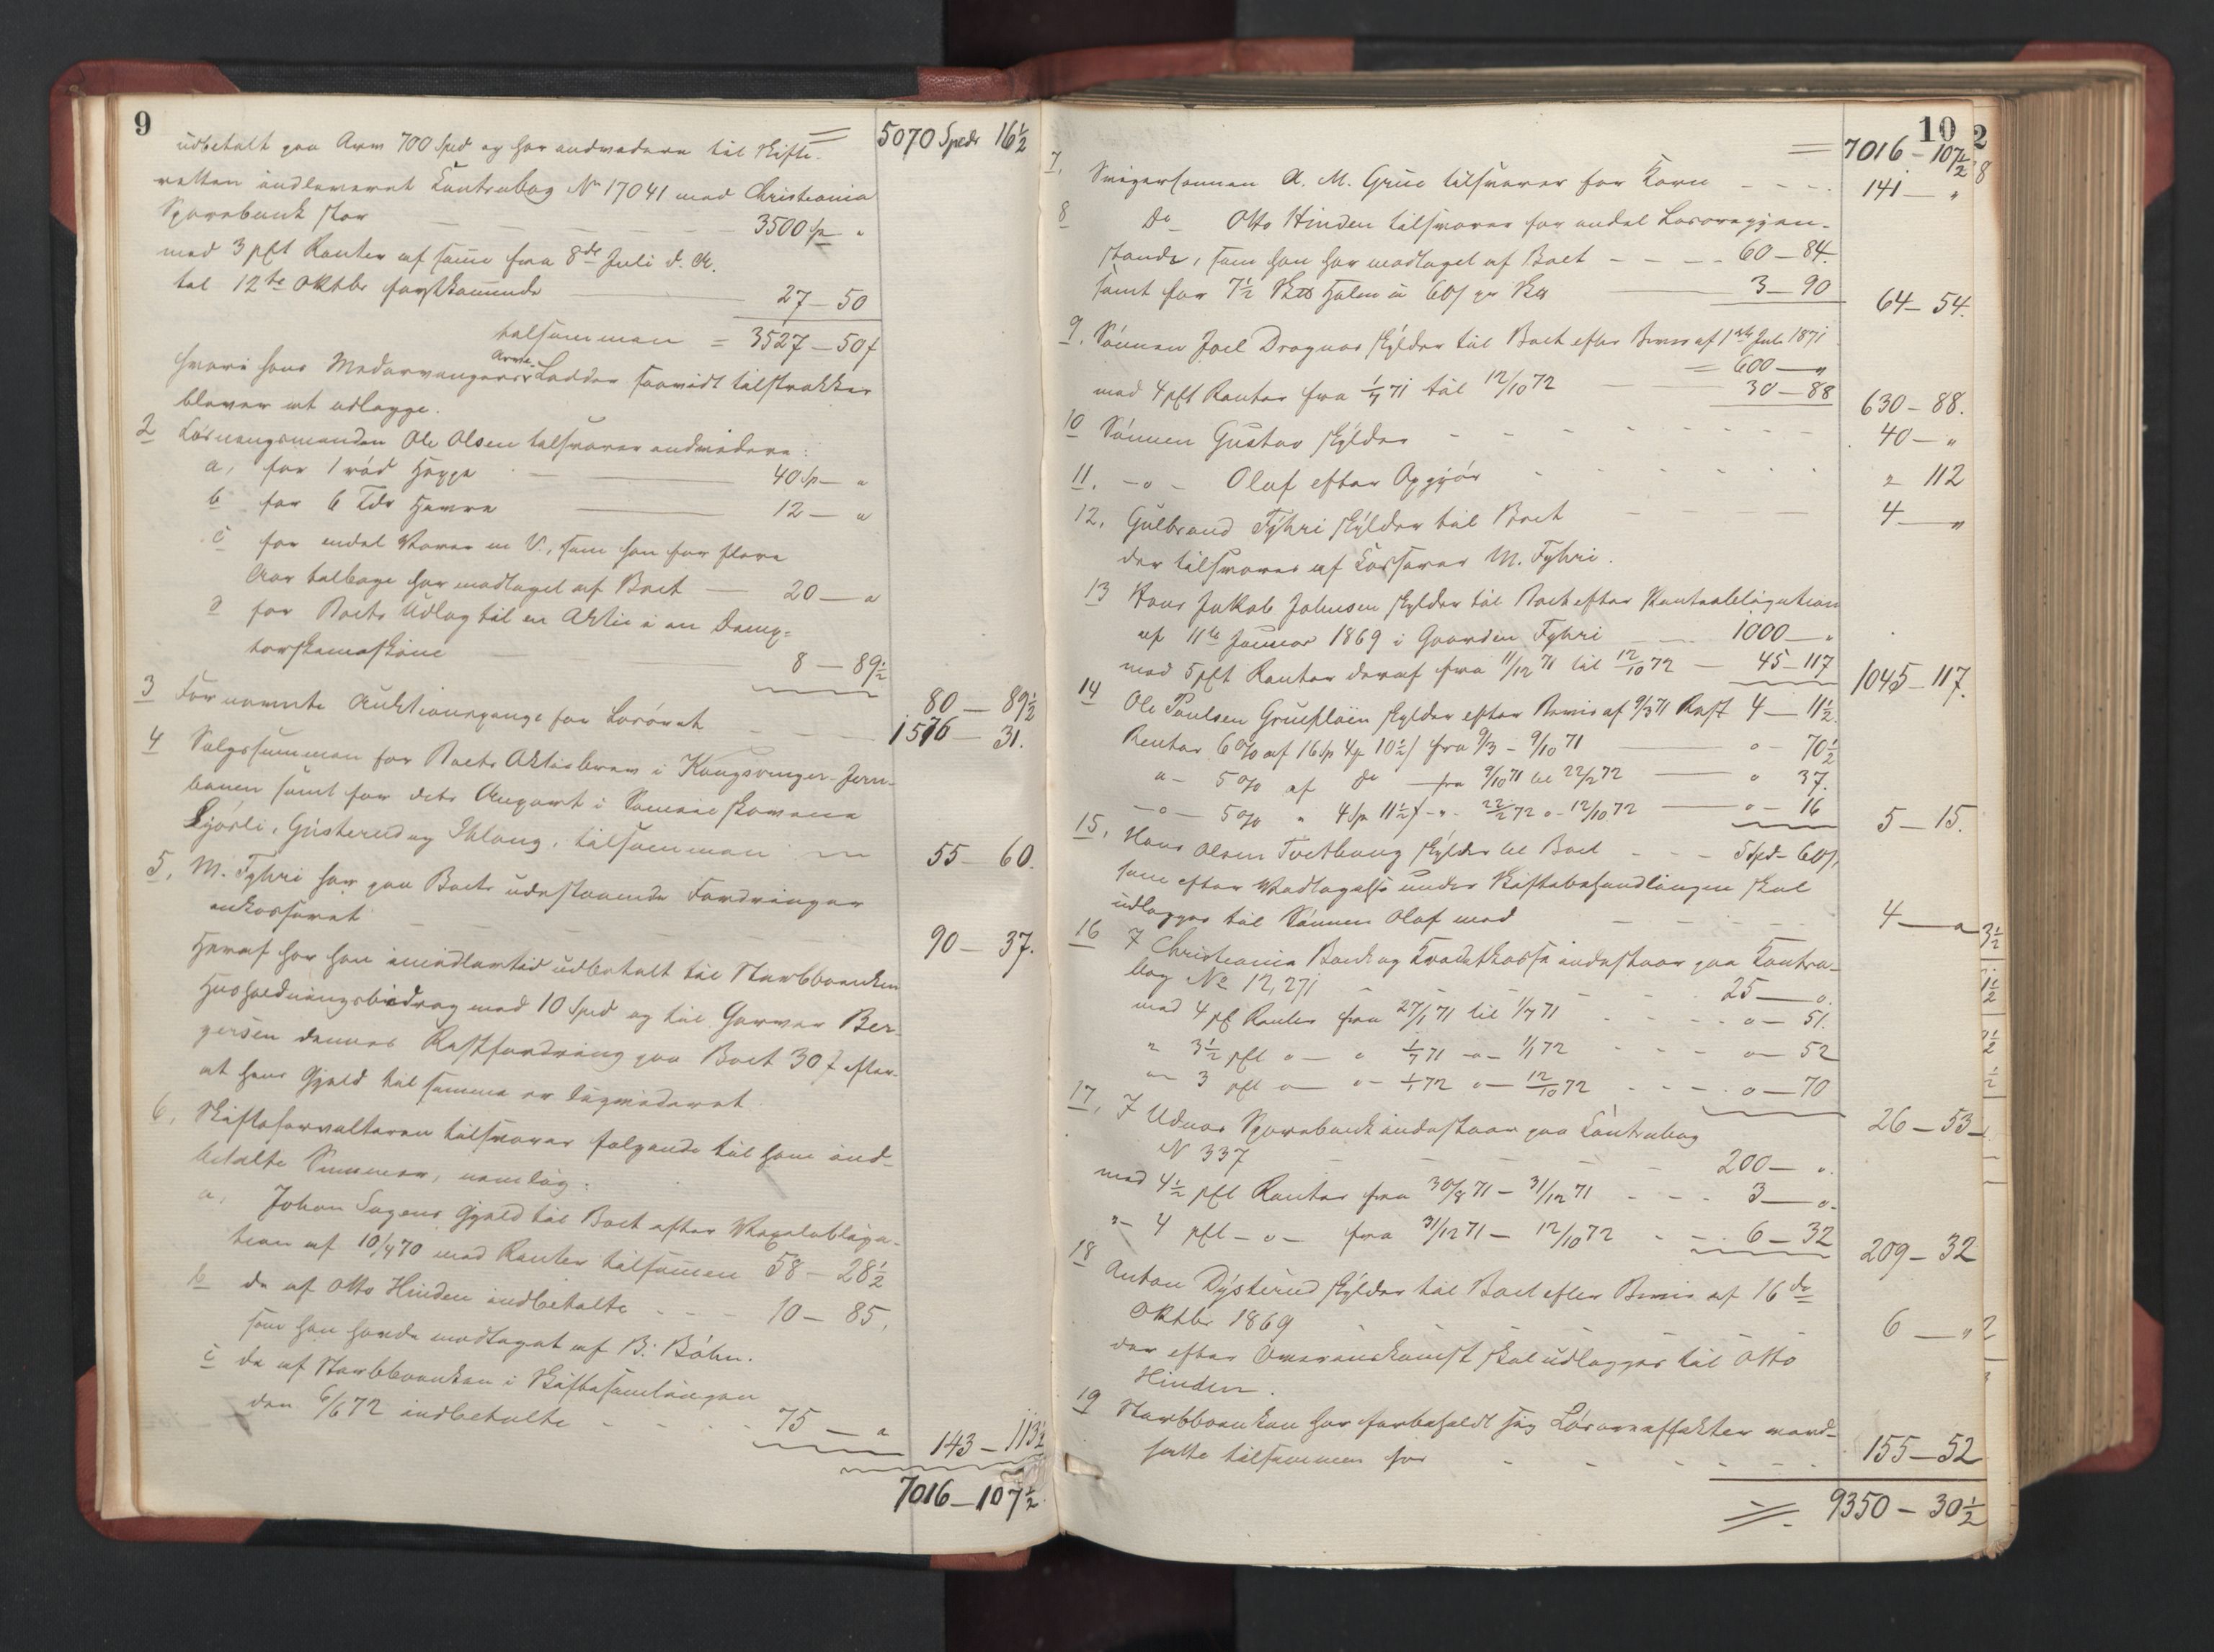 9
= 5070 Spds 16½
udbetalt paa Arven 700 Spd og har endvidere til Skifte-
retten indleveret Contrabog No 17041 med Christiania
Sparebank stor 3500 Sp "
med 3 pCt Renter af samme fra 8de Juli d. A.
til 12te Oktbr førstkommende 27 – 50
tilsammen = 3527 – 50 ſ
hvori hans Medarvingers Arve-Lodder saavidt tilstrækker
bliver at udlægge.
2 Løsningsmanden Ole Olsen tilsvarer endvidere:
a, for 1 rød Hoppe 40 Sp – "
b for 6 Tdr Havre 12 – "
c for endel Varer m V., som han for flere
Aar tilbage har modtaget af Boet — 20 – "
d for Boets Udlæg til en Aktie i en Damp-
tærskemaskine 8 – 89½
80 – 89½
3 Førnævnte Auktionspenge for Løsøret 1576 – 31.
4 Salgssummen for Boets Aktiebrev i Kongsvinger-Jern-
banen samt for dets Anpart i Sameieskovene
Lysli, Gusterud og Ihlang, tilsammen 55 – 60.
5, M. Fyhri har paa Boets udestaaende Fordringer
inkasseret 90 – 37.
Heraf har han imidlertid udbetalt til Stervboenken
Husholdningsbidrag med 10 Spd og til Garver Ber-
gersen dennes Restfordring paa Boet 30 ſ efter-
at hans Gjæld til samme er liqvideret.
6, Skifteforvalteren tilsvarer følgende til ham ind-
betalte Summer, nemlig:
a, Johan Sagens Gjæld til Boet efter Vexelobliga-
tion af 10/4 70 med Renter tilsammen 58 – 28½
b do af Otto Hinden indbetalte 10 – 85,
som han havde modtaget af B. Bøhn.
c do af Stervboenken i Skiftesamlingen
den 6/6 72 indbetalte 75 – "
143 – 113½
7016 – 107½
10
= 7016 – 107½
7, Svigersønnen A. M. Grue tilsvarer for Korn 141 – "
8 Do Otto Hinden tilsvarer for endel Løsøregjen-
stande, som han har modtaget af Boet 60 – 84.
samt for 7½ Halm à 60 ſ pr 3 – 90
64 – 54.
9, Sønnen Joel Dragnes skylder til Boet efter Bevis af 1ste Juli 1871
= 600 – "
med 4 pCt Renter fra 1/7 71 til 12/10 72 30 – 88
630 – 88.
10 Sønnen Gustav skylder 40 – "
11. – " – Oluf efter Opgjør " 112
12, Gulbrand Fyhri skylder til Boet 4 – "
der tilsvares af Kasserer M. Fyhri.
13 Hans Jakob Johnsen skylder til Boet efter Pantobligation
af 11te Januar 1869 i Gaarden Fyhri 1000 – "
med 5 pCt Renter deraf fra 11/12 71 til 12/10 72 — 45 – 117
1045 – 117.
14 Ole Paulsen Gruefløien skylder efter Bevis af 9/3 71 Rest 4 – 11½.
Renter 6 % af 16 Sp 4 10½ ſ fra 9/3 – 9/10 71 " – 70½
" – 5 % af do fra 9/10 71 til 22/2 72 " 37.
– " – 5 % " 4 Sp 11½ ſ – " – 22/2 72 " – 12/10 72 " – 16
5 – 15.
15, Hans Olsen Tvetbang skylder til Boet 5 Spd – 60 ſ,
som efter Vedtagelse under Skiftebehandlingen skal
udlægges til Sønnen Oluf med 4 – "
16 I Christiania Bank og Kreditkasse indestaar paa Kontra-
bog No 12,271 25 – ".
med 4 pC Renter fra 27/1 71 til 1/7 71 " – 51.
" 3½ pCt " – " 1/7 71 – " – 1/1 72 " – 52
" – 3 pCt " – " – 1/1 72 " – 12/10 72 " – 70
26 – 53 –
17, I Udnæs Sparebank indestaar paa Contrabog
N 337 200 – ".
med 4½ pCt Renter fra 30/8 71 – 31/12 71 3 – ".
" – 4 pCt – " – fra 31/12 71 – 12/10 72 6 – 32
209 – 32
18 Anton Dysterud skylder til Boet efter Bevis af 16de
Oktbr 1869 6 – "
der efter Overenskomst skal udlægges til Otto
Hinden.
19 Stervboenken har forbeholdt sig Løsøreeffekter værd-
satte tilsammen for 155 – 52
= 9350 – 30½